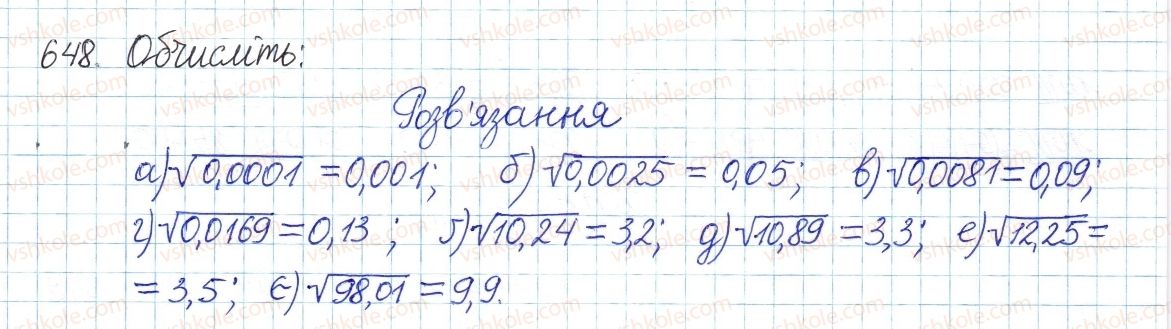 648. Обчисліть:
Розв'язання
а) √0,0001 = 0,001; б) √0,0025 = 0,05; в) √0,0081 = 0,09;
г) √0,0169 = 0,13 ; ґ) √10,24 = 3,2; д) √10,89 = 3,3; е) √12,25 =
= 3,5; є) √98,01 = 9,9.